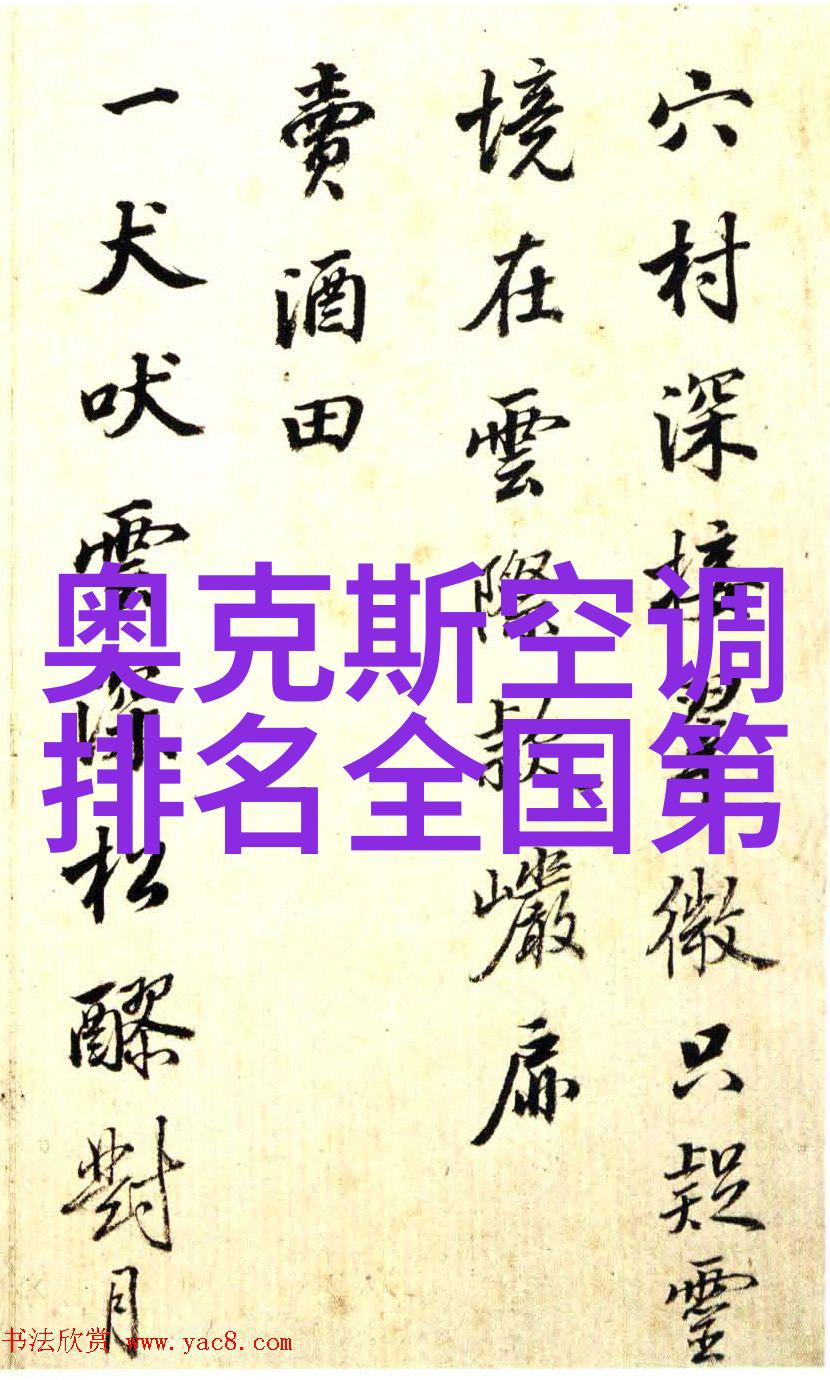 穴村深接翠微只疑靈
境在雲際款巖扉
賣酒田
一犬吠雲深松醪對月
奥克斯空调
排名全国第
书法欣赏 www.yac8.com